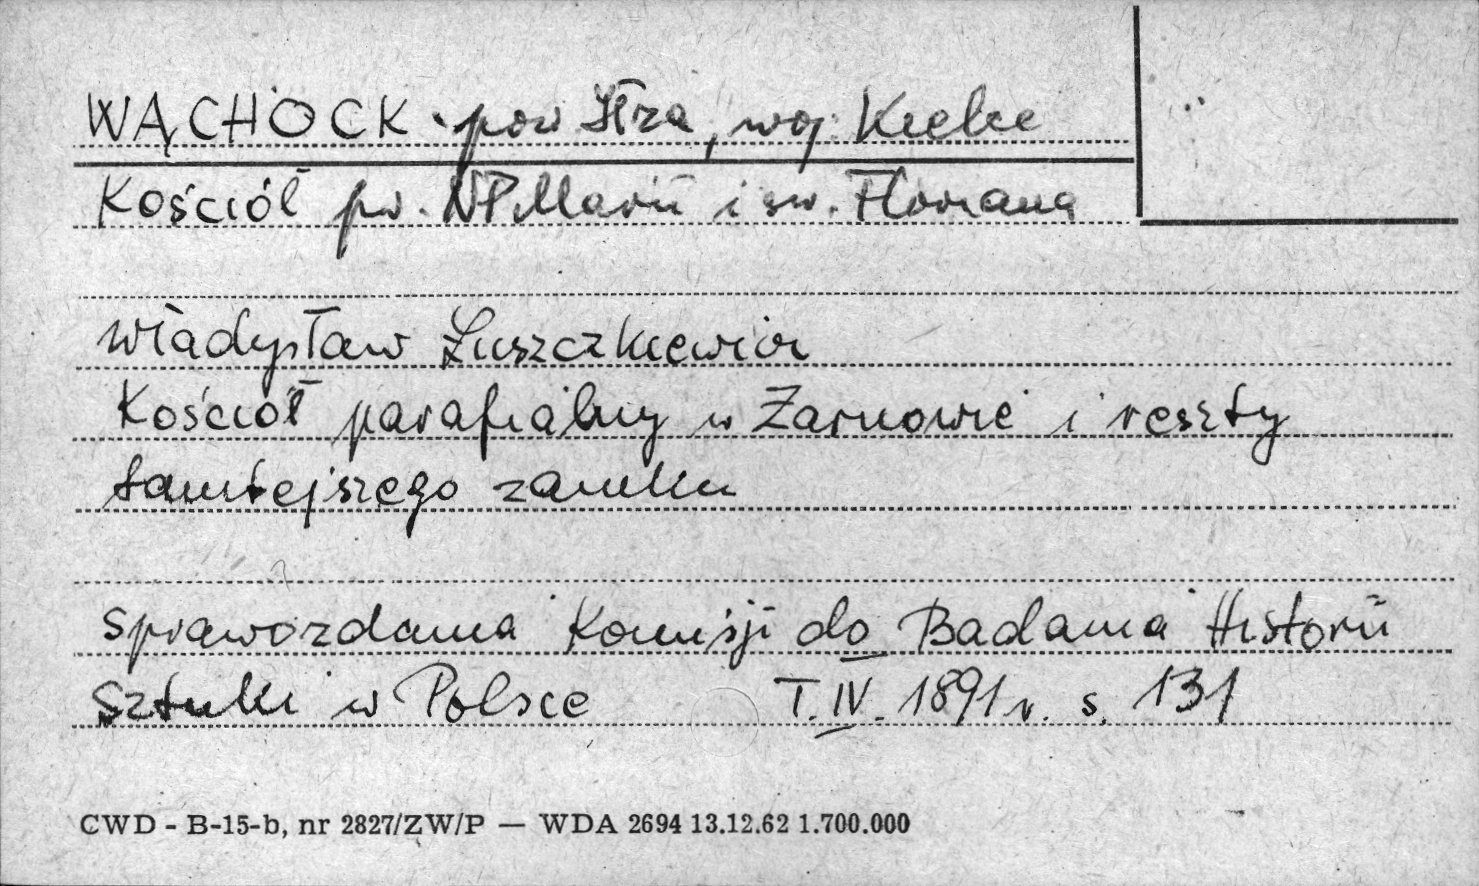 WĄCHOCK pow Iłża, woj. Kielce
Kościół pw. NPMarii i św. Floriana
Władysław Łuszczkiewicz
Kościół parafialny w Żarnowie i reszty
tamtejszego zamku
Sprawozdania Komisji do Badania Historii
Sztuki w Polsce T. IV. 1891 r. s. 131
CWD - B-15-b, nr 2827/ZW/P — WDA 2694 13.12.62 1.700.000